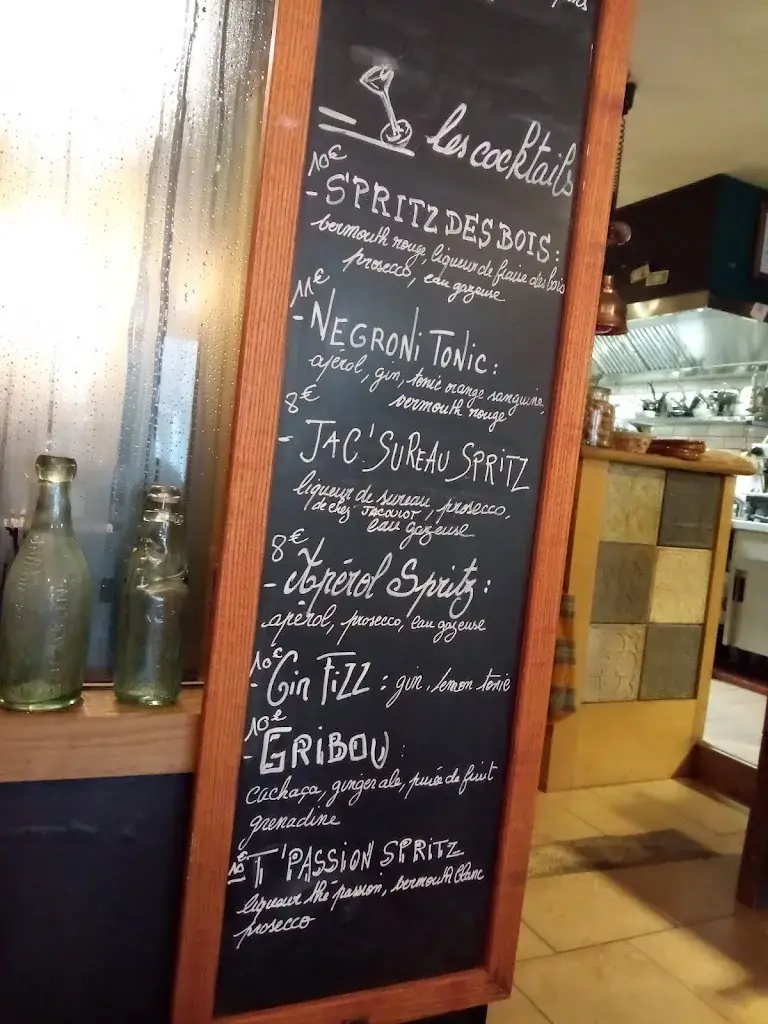 les cocktails
10€
- SPRITZ DES BOIS :
vermouth rouge, liqueur de fraise des bois
prosecco, eau gazeuse
11€
- NEGRONI TONIC :
apérol, gin, tonic orange sanguine,
vermouth rouge
8€
- JAC'SUREAU SPRITZ
liqueur de sureau, prosecco,
de chez JACOULOT, eau gazeuse
8€
- Apérol Spritz :
apérol, prosecco, eau gazeuse
10€
- Gin FIZZ : gin, lemon tonic
10€
- GRIBOU :
cachaça, ginger ale, purée de fruit
grenadine
10€
- TI'PASSION SPRITZ
liqueur thé passion, vermouth blanc
prosecco